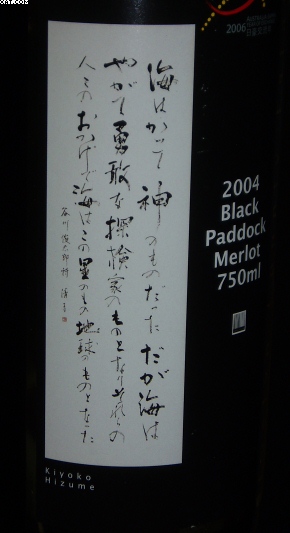 海はかつて神のものだった だが海は
やがて勇敢な探検家のものとなりそれらの
人々のおかげで海はこの星のもの地球のものとなった
谷川俊太郎
2006
2004
Black
Paddock
Merlot
750ml
Kiyoko
Hizume